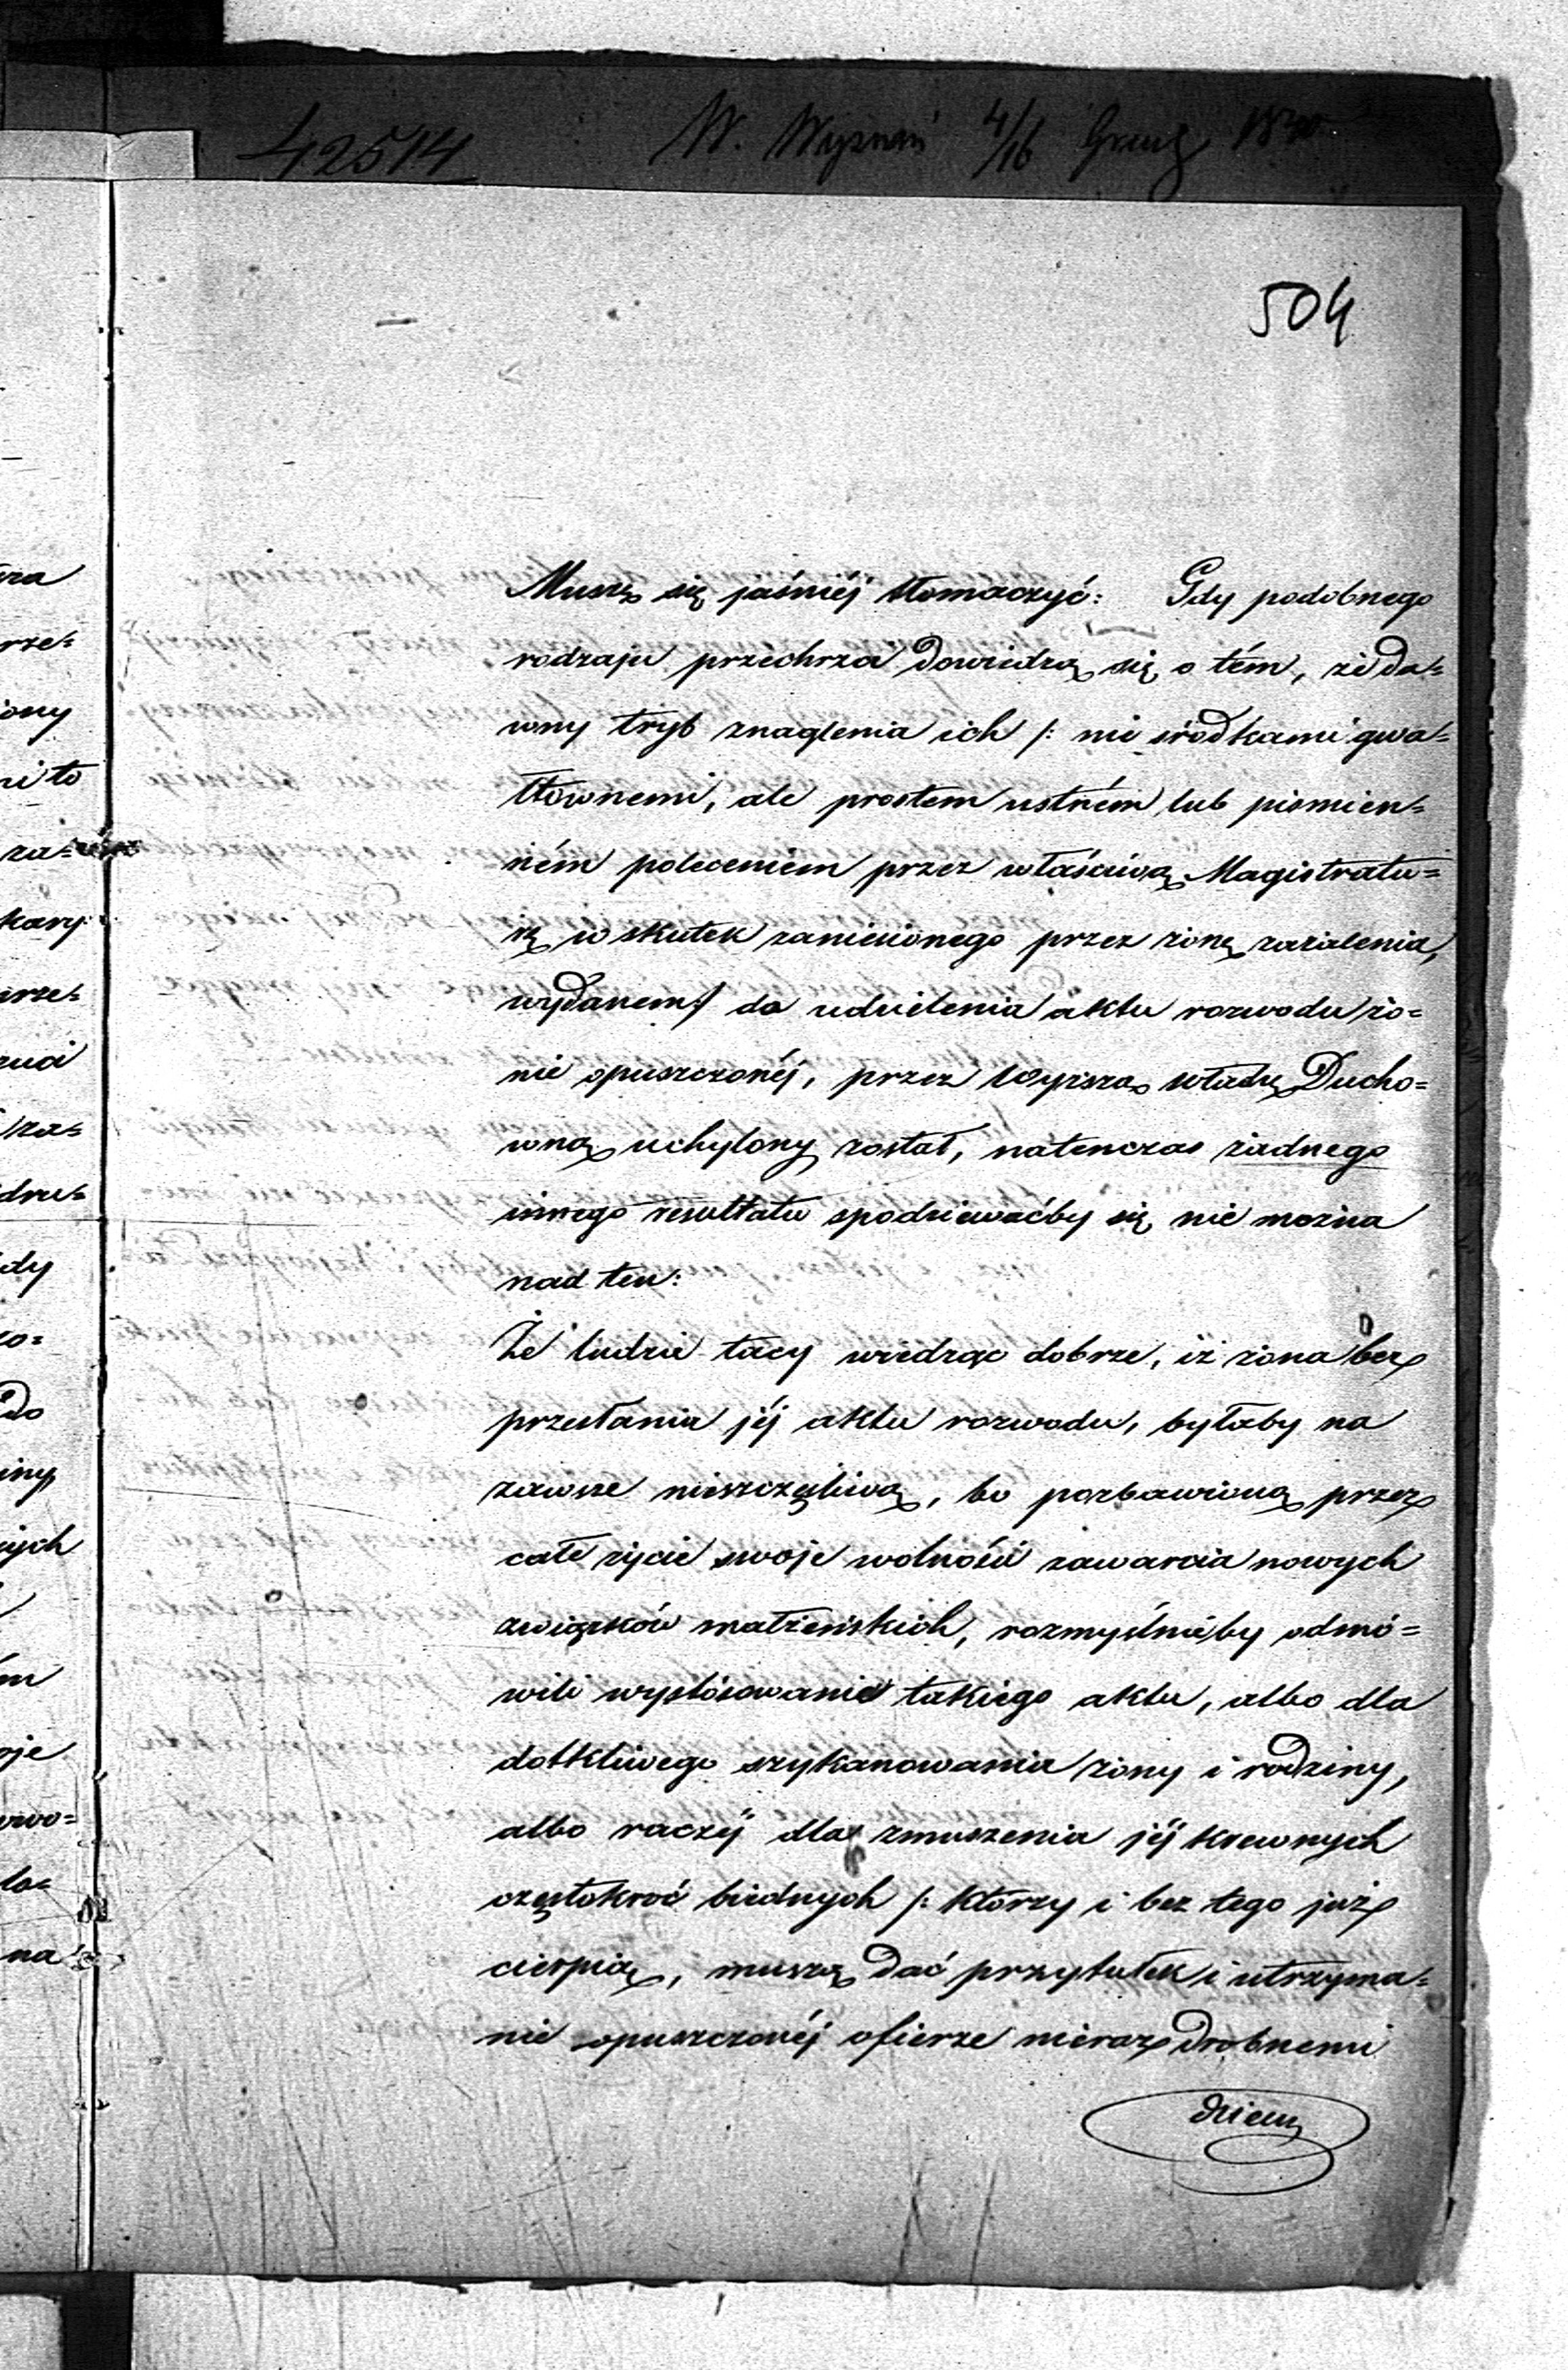 42514 W. Wyznań 4/16 Grud 18
504
Muszę się jaśniéj tłomaczyć: Gdy podobnego
rodzaju przechrza dowiedzą się o tém, że da=
wny tryb znaglenia ich /: nie środkami gwa=
łtownemi, ale prostem ustném lub piśmien=
ném poleceniem przez właściwą Magistratu=
rę w skutek zaniesionego przez żonę zażalenia,
wydanem :/ do udzielenia aktu rozwodu żo=
nie opuszczonéj, przez Wyższą władzę Ducho=
wną uchylony został, natenczas żadnego
innego resultatu spodziewaćby się nie można
nad ten:
Że ludzie tacy wiedząc dobrze, iż żona bez
przesłania jéj aktu rozwodu, byłaby na
zawsze nieszczęśliwą, bo pozbawioną przez
całe życie swoje wolności zawarcia nowych
związków małżeńskich, rozmyślnieby odmó=
wili wystósowanie takiego aktu, albo dla
dotkliwego szykanowania żony i rodziny,
albo raczéj dla zmuszenia jéj krewnych
częstokroć biednych /: którzy i bez tego już
cierpią, muszą dać przytułek i utrzyma=
nie opuszczonéj ofierze nieraz drobnemi
dziećmi
ra
rze=
iony
ni to
za=
kary
rze=
za=
dru=
dy
zo=
do
iny
ych
m
oje
owo=
la=
na